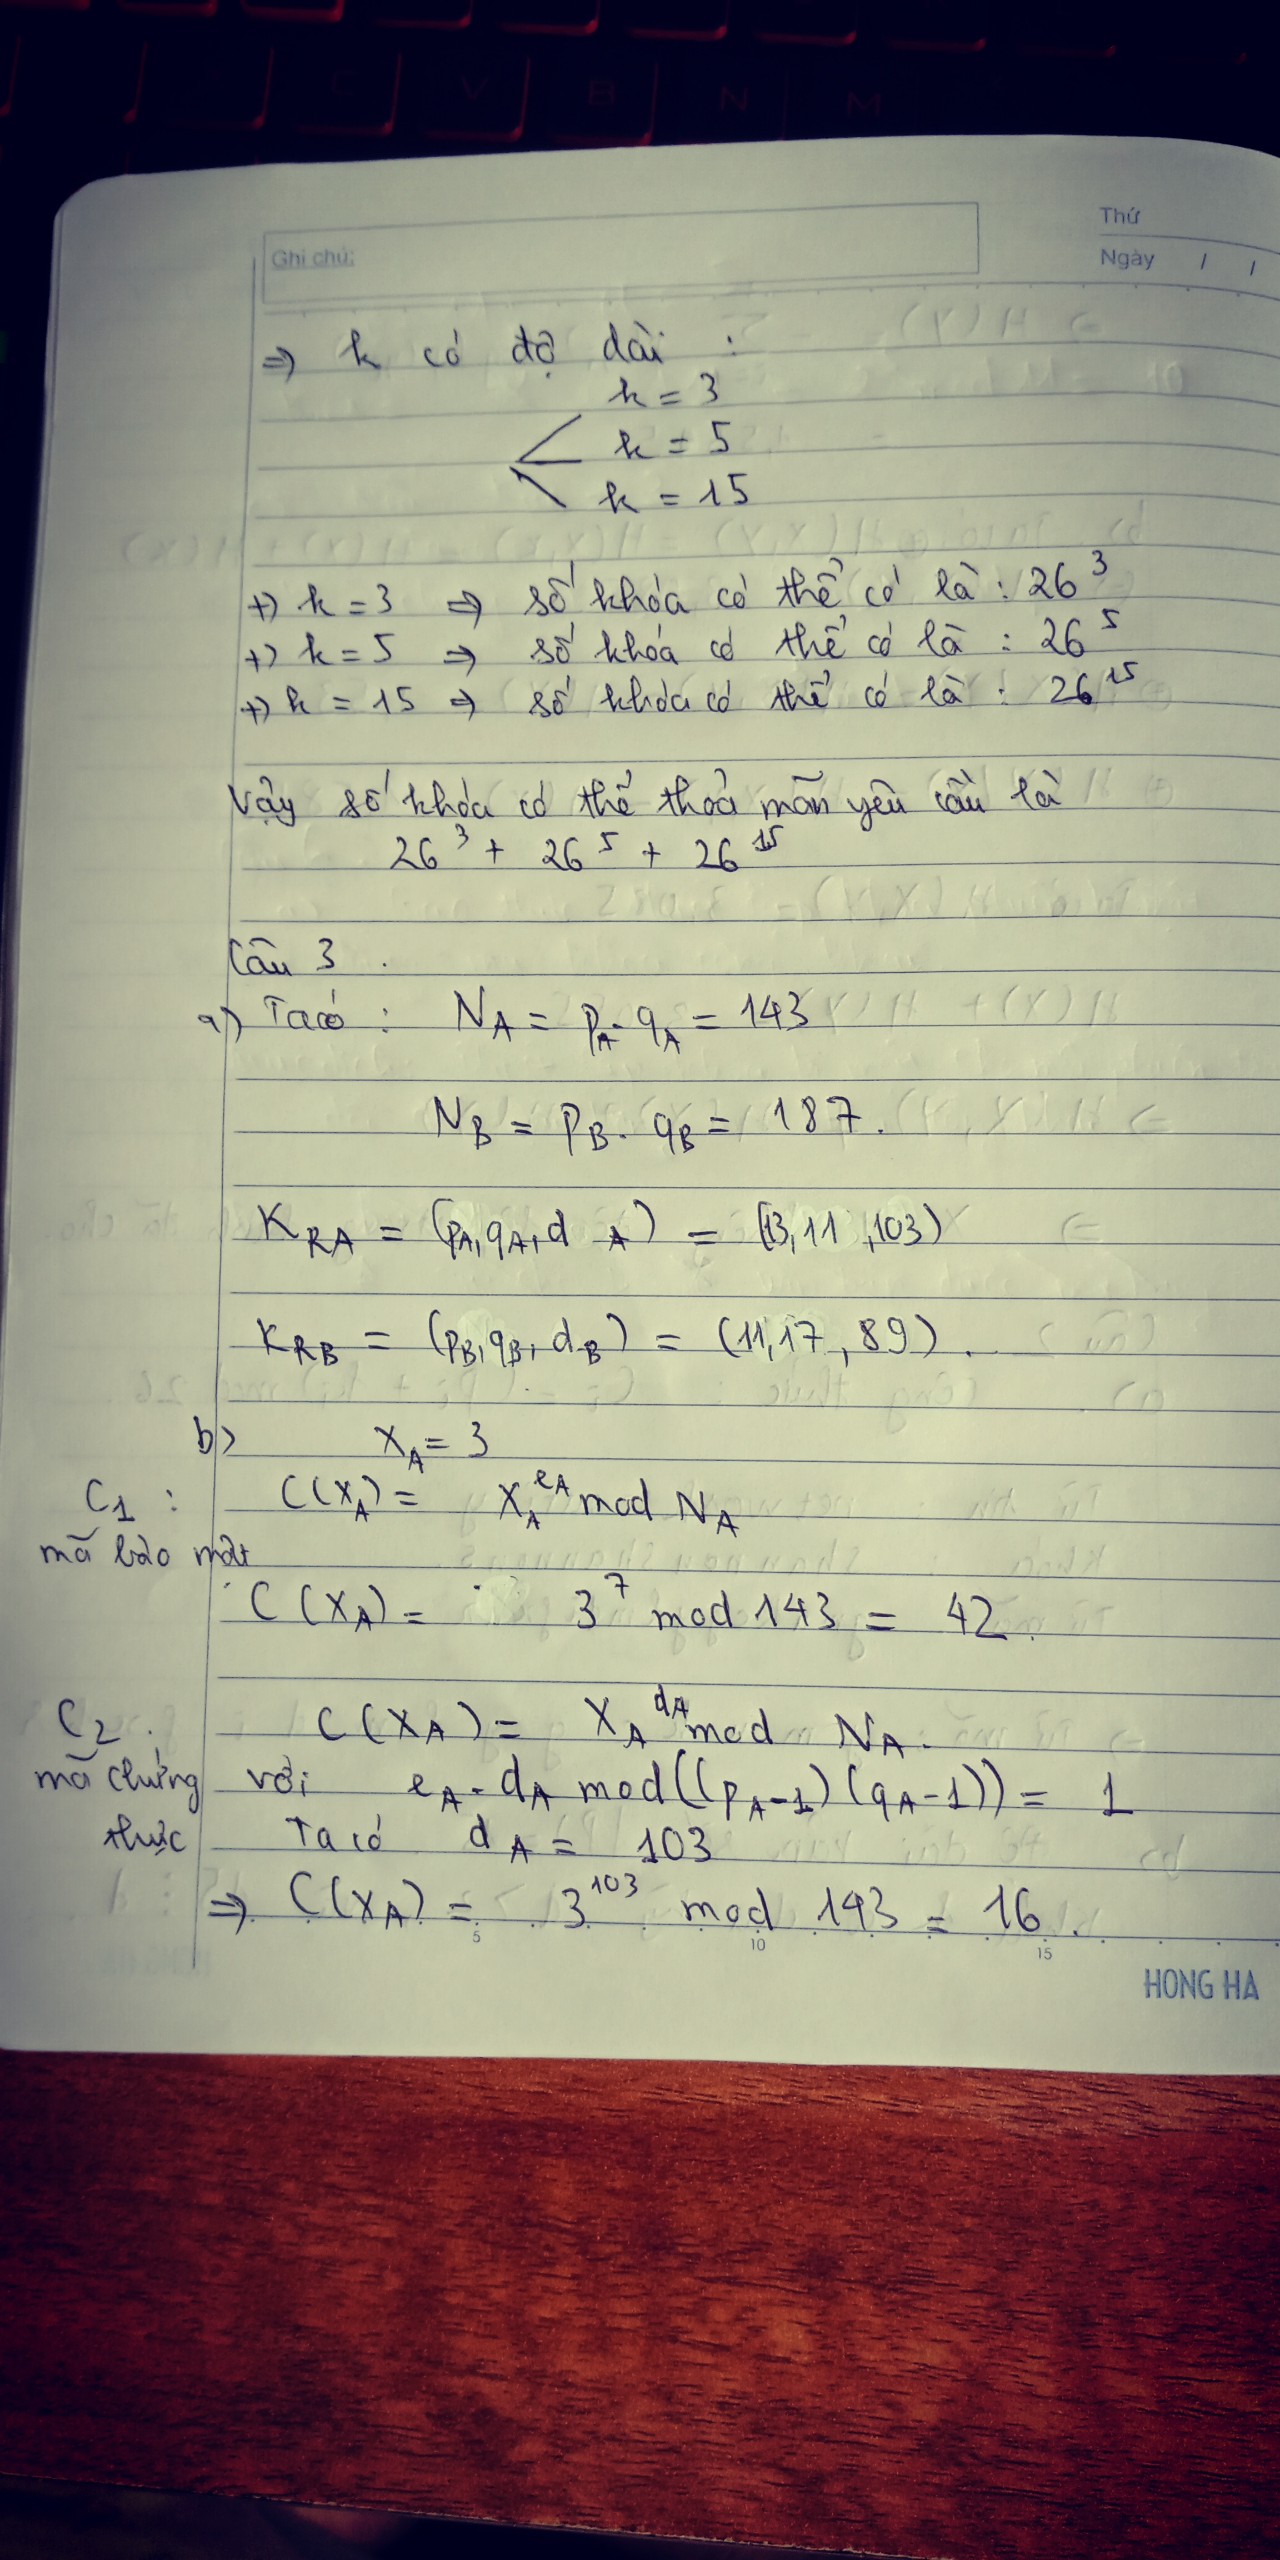 C V B N M
Thứ
Ghi chú:
Ngày / /
=> k có độ dài :
k = 3
k = 5
k = 15
+) k = 3 => số khóa có thể có là : 26^3
+) k = 5 => số khóa có thể có là : 26^5
+) k = 15 => số khóa có thể có là : 26^15
Vậy số khóa có thể thỏa mãn yêu cầu là
26^3 + 26^5 + 26^15
Câu 3 .
a) Ta có : N_A = p_A . q_A = 143
N_B = p_B . q_B = 187 .
K_RA = (p_A, q_A, d_A) = (13, 11, 103)
K_RB = (p_B, q_B, d_B) = (11, 17, 89) .
b) X_A = 3
C1 : C(X_A) = X_A^e_A mod N_A
mã bảo mật
C(X_A) = 3^7 mod 143 = 42 .
C2 . C(X_A) = X_A^d_A mod N_A .
mã chứng với e_A . d_A mod((p_A-1)(q_A-1)) = 1
thực Ta có d_A = 103
=> C(X_A) = 3^103 mod 143 = 16 .
5 10 15
HONG HA